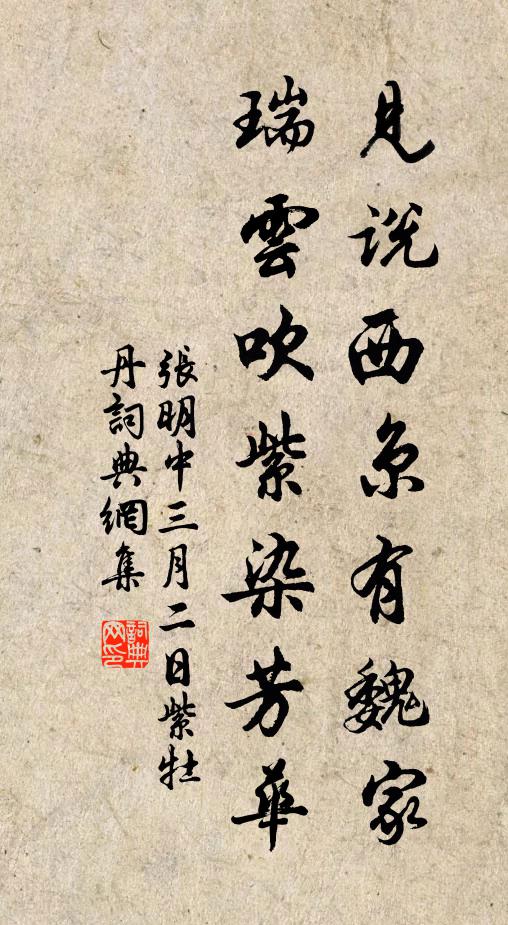 見説西京有魏家
瑞雲吹紫染芳華
張明中三月二日紫牡
丹詞典網集
詞典
网印